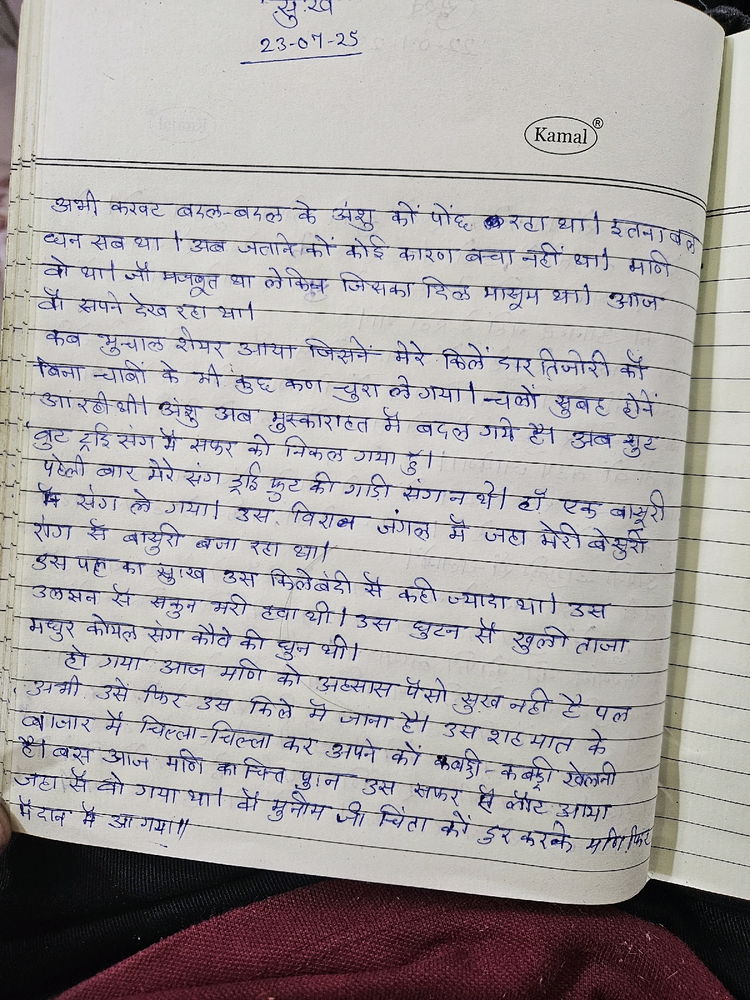 सुःख
23-07-25
Kamal®
अभी करवट बदल-बदल के अंशु कों पोंछ रहा था। इतना बल
धन सब था। अब जताने कों कोई कारण बचा नहीं था। मणि
वो था। जौ मजबूत था लेकिन जिसका दिल मासूम था। आज
वों सपने देख रहा था।
कब भुन्चाल शेयर आया जिसनें मेरे किलें दार तिजोरी कों
बिना चाबीं के भी कुछ कण चुरा ले गया। चलों सुबह होनें
आ रही थी। अंशु अब मुस्काराहत में बदल गये है। अब सुट
बुट ट्राई संग में सफर को निकल गया हु।
पहेली बार मेरे संग ड्राई फुट की गाडी संग न थे। हाँ एक बासूरी
में संग ले गया। उस विरान जंगल में जहा मेरी बेसुरी
राग सें बासुरी बजा रहा था।
उस पल का सुःख उस किलेबंदी सें कही ज्यादा था। उस
उलझन सें सकुन भरी हवा थी। उस घुटन सें खुली ताजा
मधुर कोयल संग कौवे की धुन थी।
हो गया आज मणि को अहसास पैसो सुख नही है पल
अभी उसें फिर उस किले में जाना है। उस शह मात के
बाजार में चिल्ला-चिल्ला कर अपने कों कबड्डी-कबड्डी खेलनी
है। बस आज मणि का चित प्रान उस सफर सें लौट आया
जहा सें वो गया था। वों मुनीम जी चिंता कों दुर करके मणि फिर
मैदान में आ गया॥